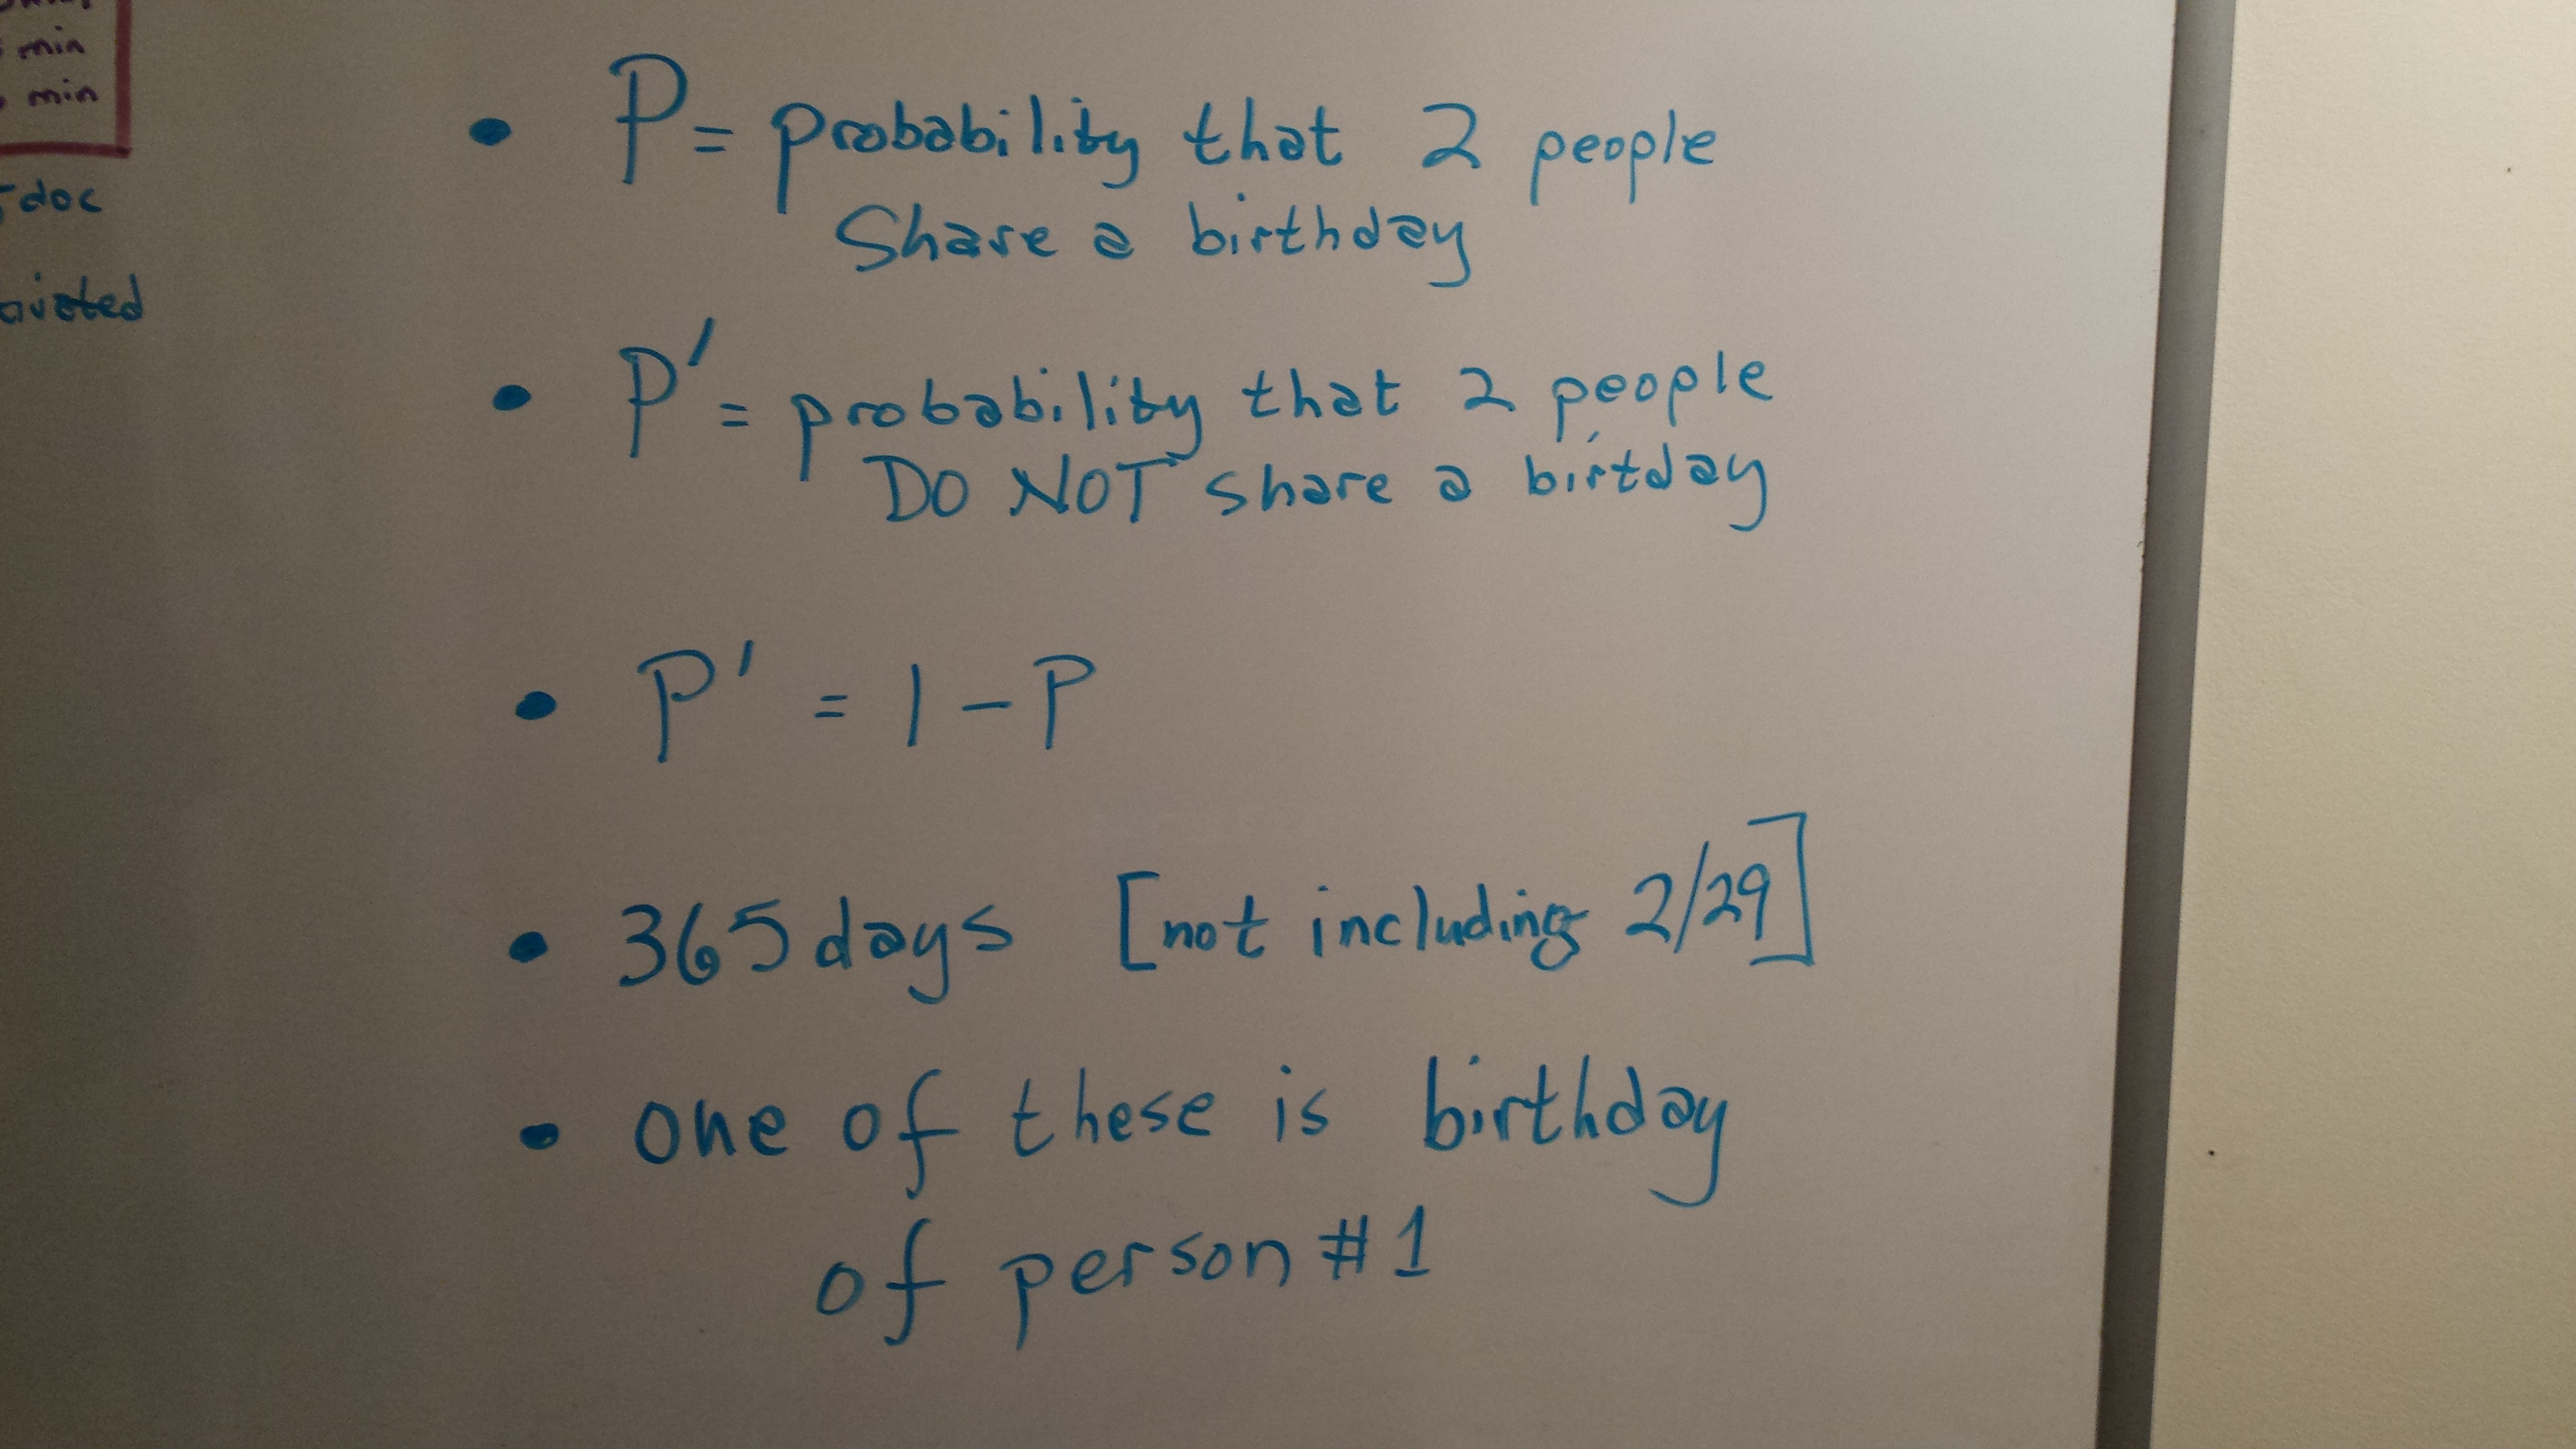 min
min
doc
• P = probability that 2 people
Share a birthday
• P' = probability that 2 people
DO NOT share a birtday
• P' = 1 - P
• 365 days [not including 2/29]
• one of these is birthday
of person #1